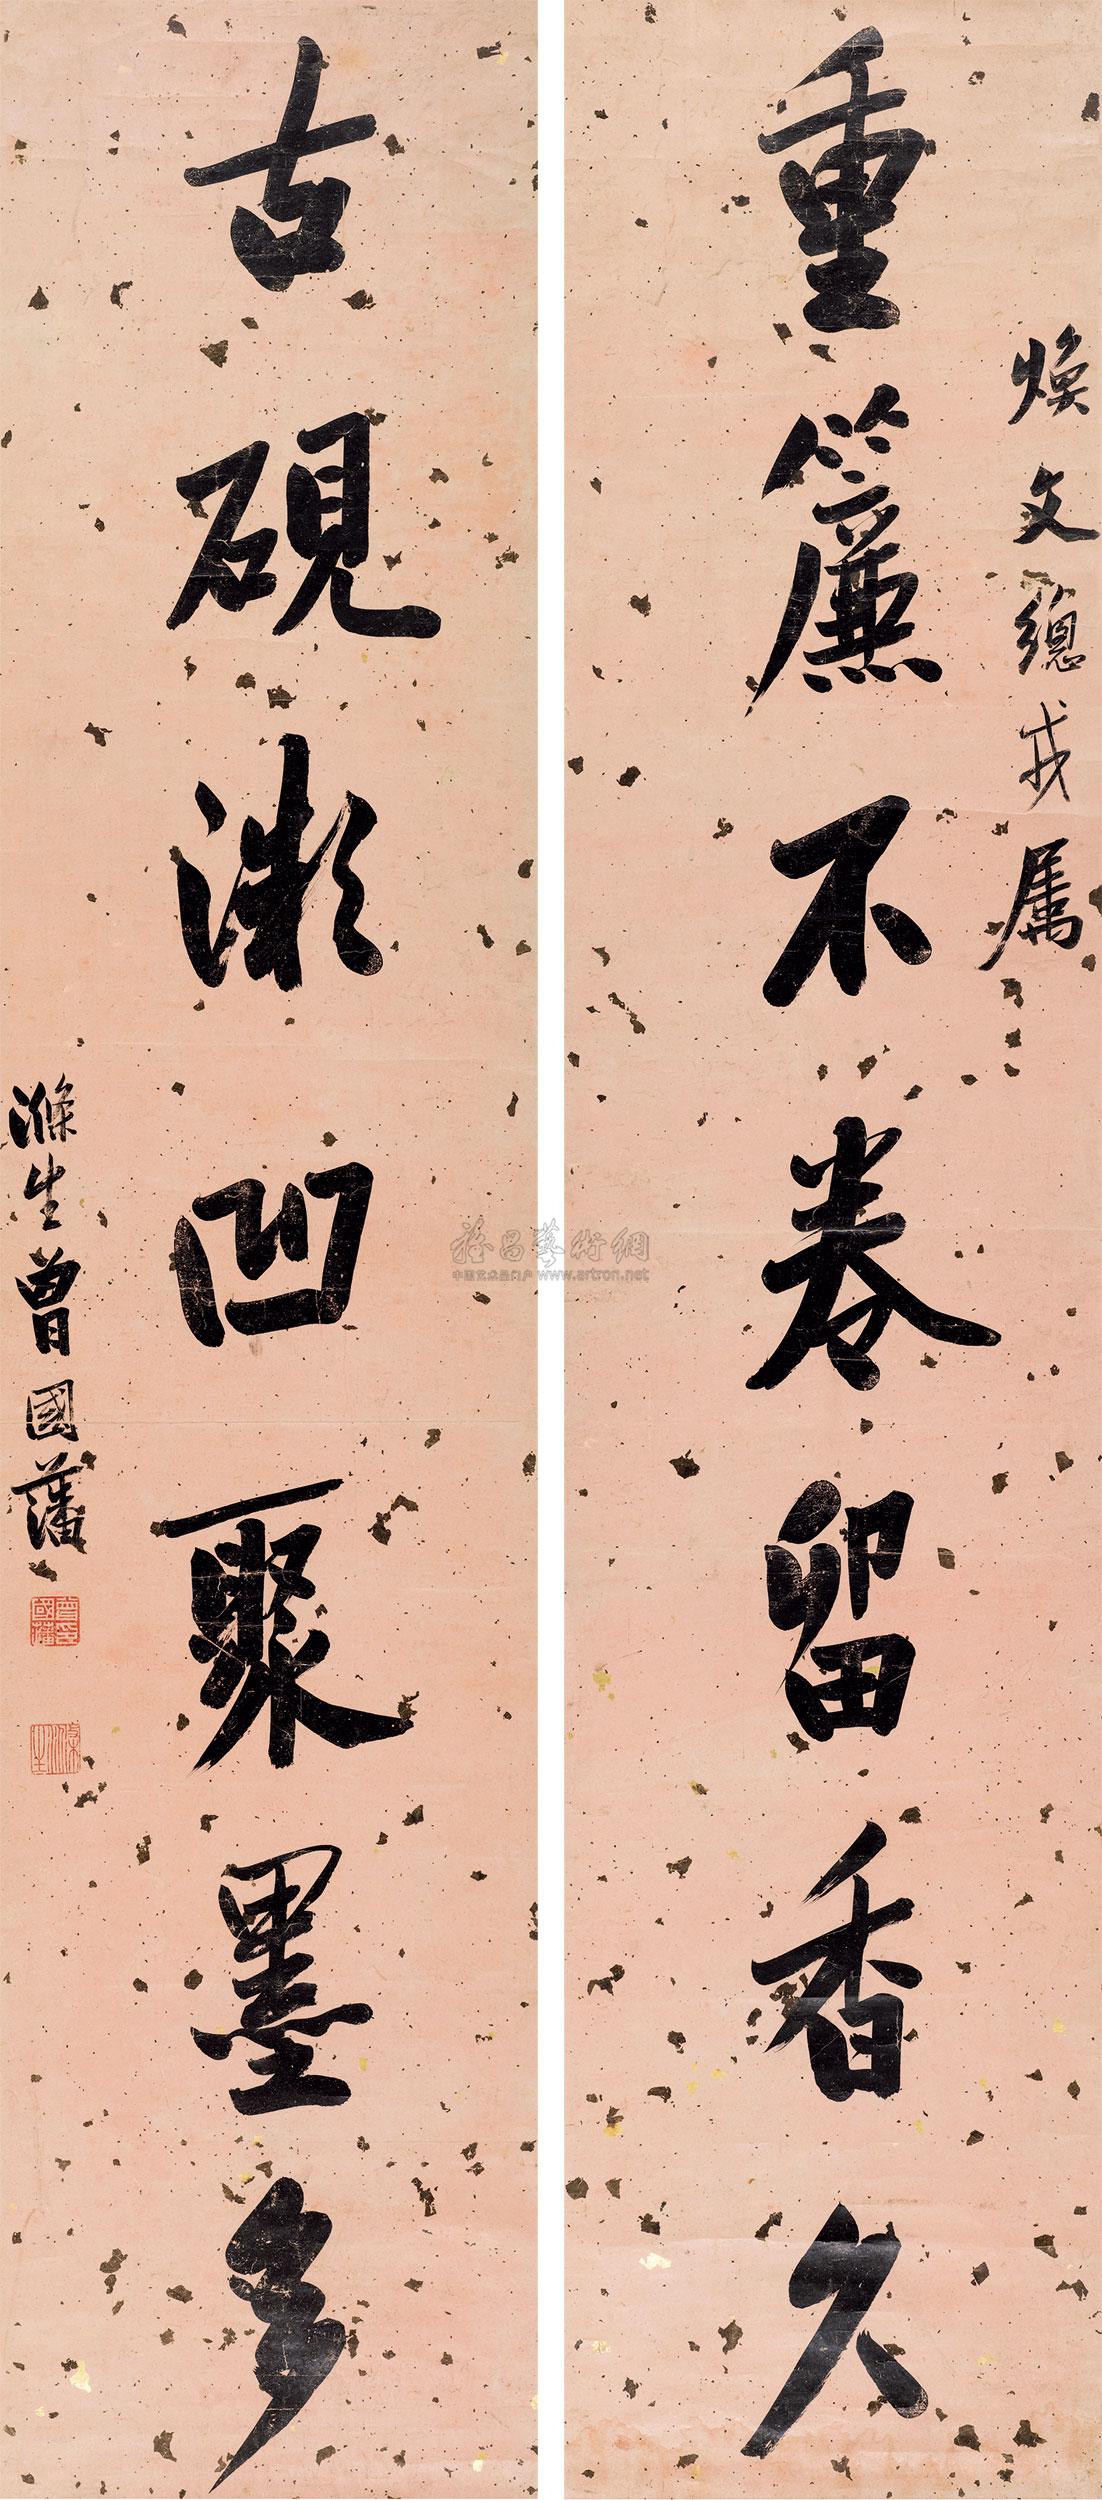 煥文總戎屬
重簾不卷留香久
古硯微凹聚墨多
滌生曾國藩
曾印國藩
滌生
雅昌藝術網
中国艺术品门户 www.artron.net